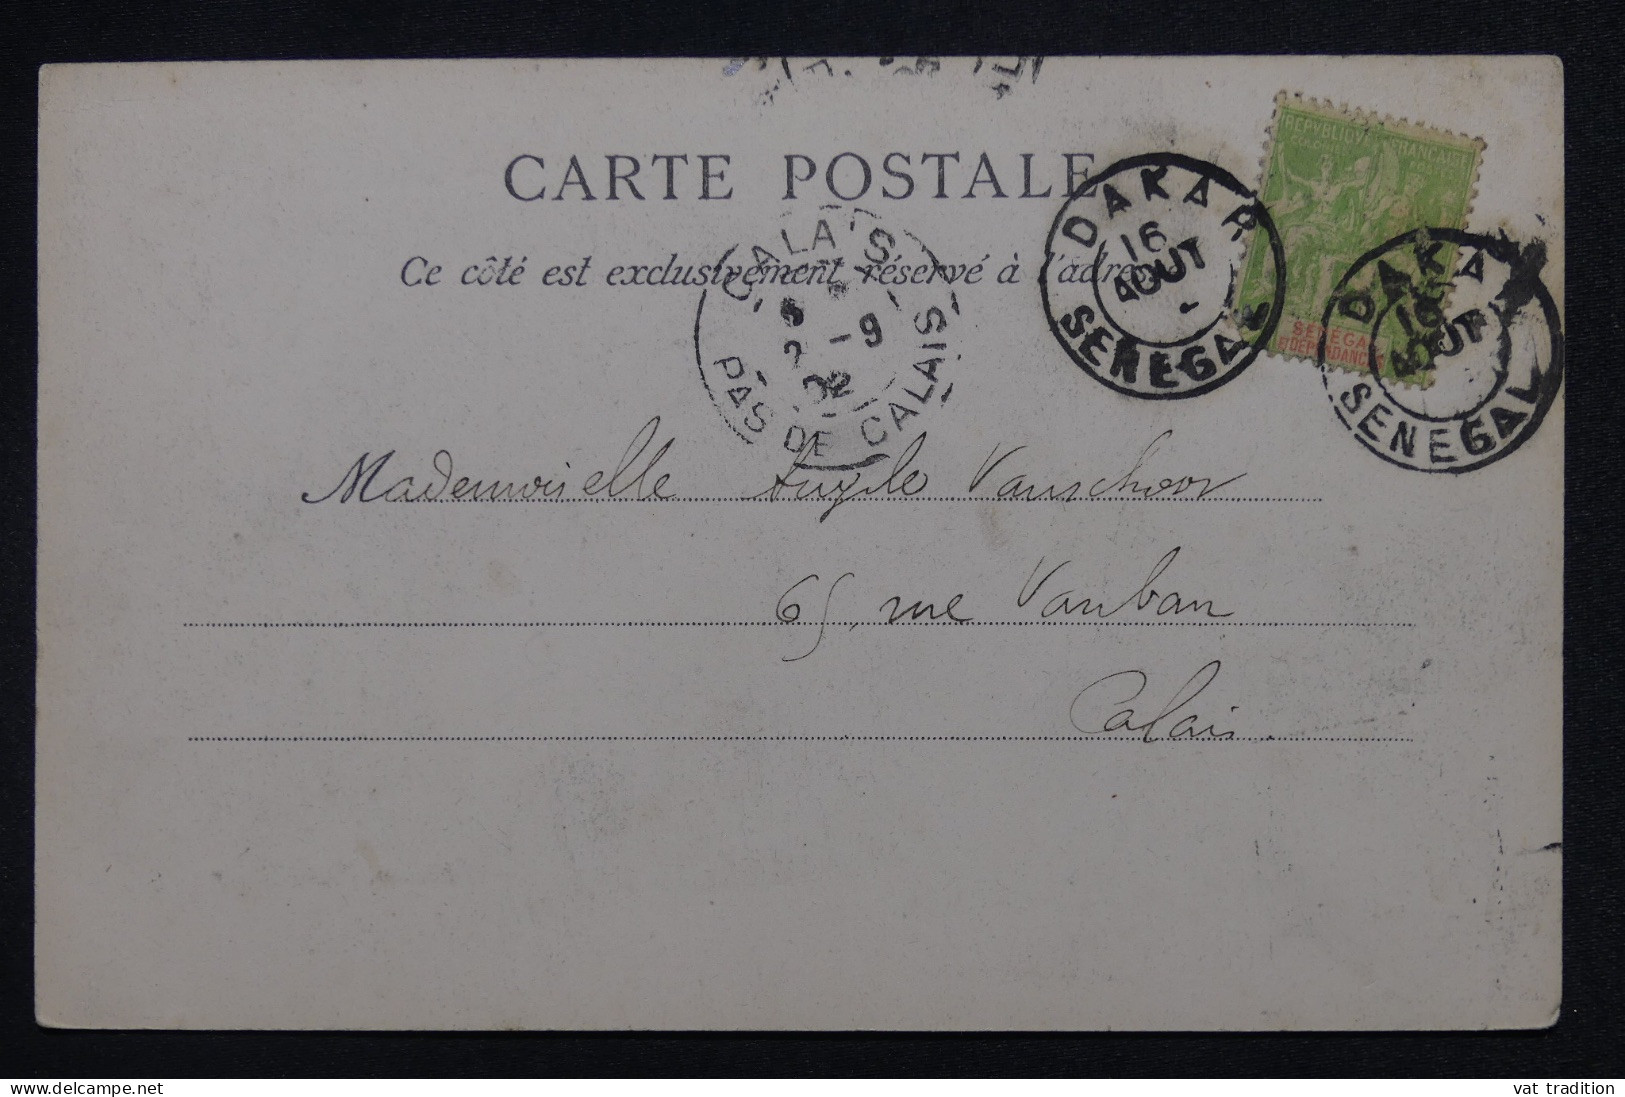 CARTE POSTALE
Ce côté est exclusivement réservé à l'adresse
CALAIS
2 -9
02
PAS DE CALAIS
DAKAR
16
AOUT
SENEGAL
REPVBLIQVE FRANCAISE
COLONIES
SENEGAL
ET DEPENDANCES
DAKAR
16
AOUT
SENEGAL
Mademoiselle Angèle Vanschoor
65, rue Vauban
Calais.
vat tradition
Delcampe.net